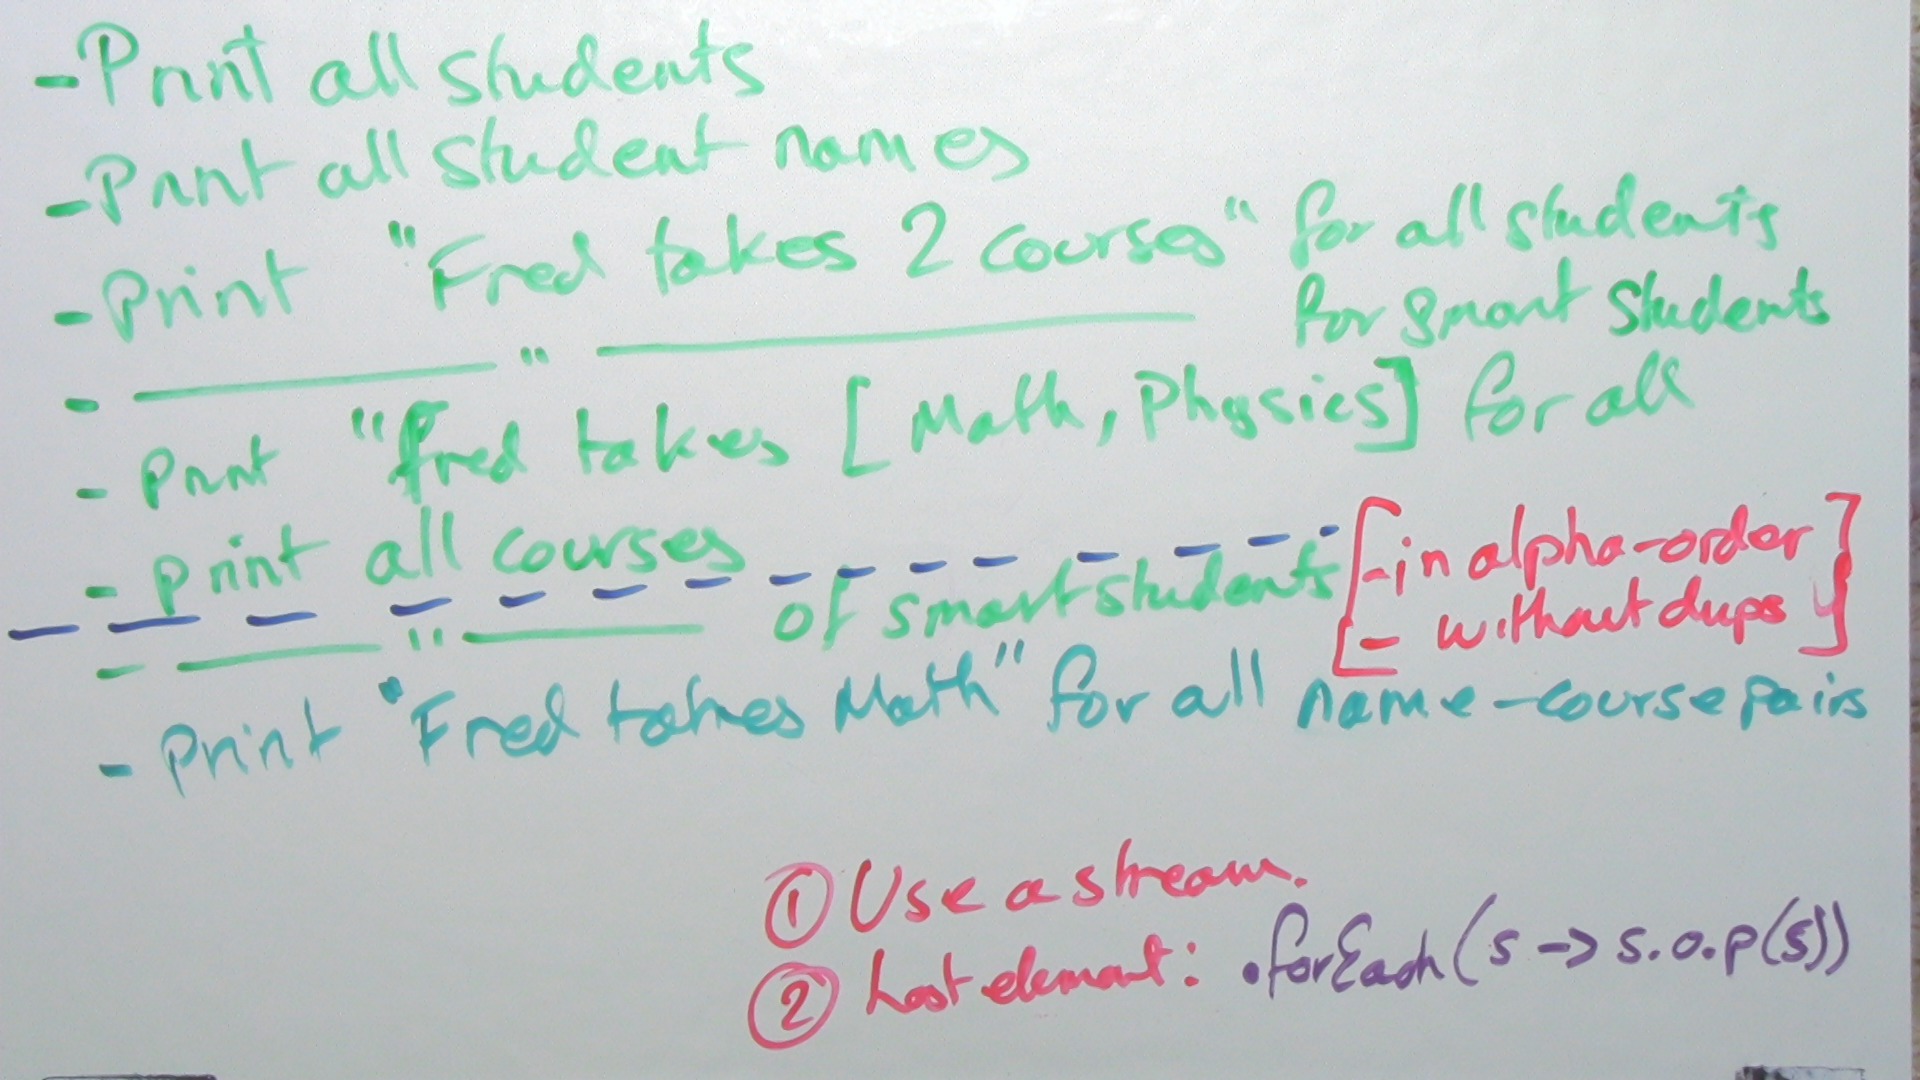 - Print all students
- Print all student names
- Print "Fred takes 2 courses" for all students
- " for smart students
- Print "Fred takes [Math, Physics] for all
- Print all courses
- " of smart students [- in alpha-order
- without dups]
- Print "Fred takes Math" for all name-course pairs
① Use a stream.
② Last element: .forEach(s -> s.o.p(s))